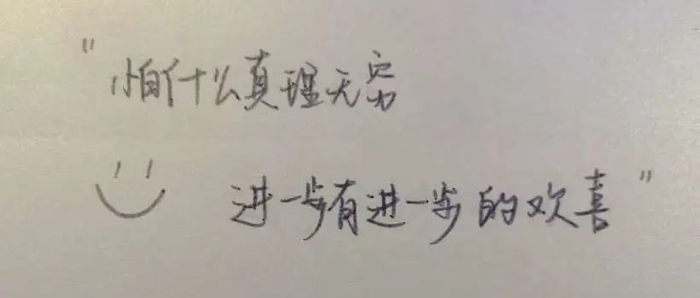 "怕什么真理无穷
进一步有进一步的欢喜"